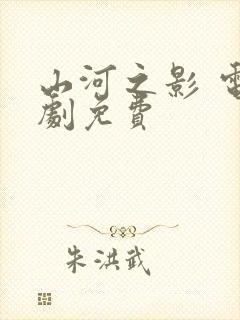 山河之影 電
劇免費
朱洪武